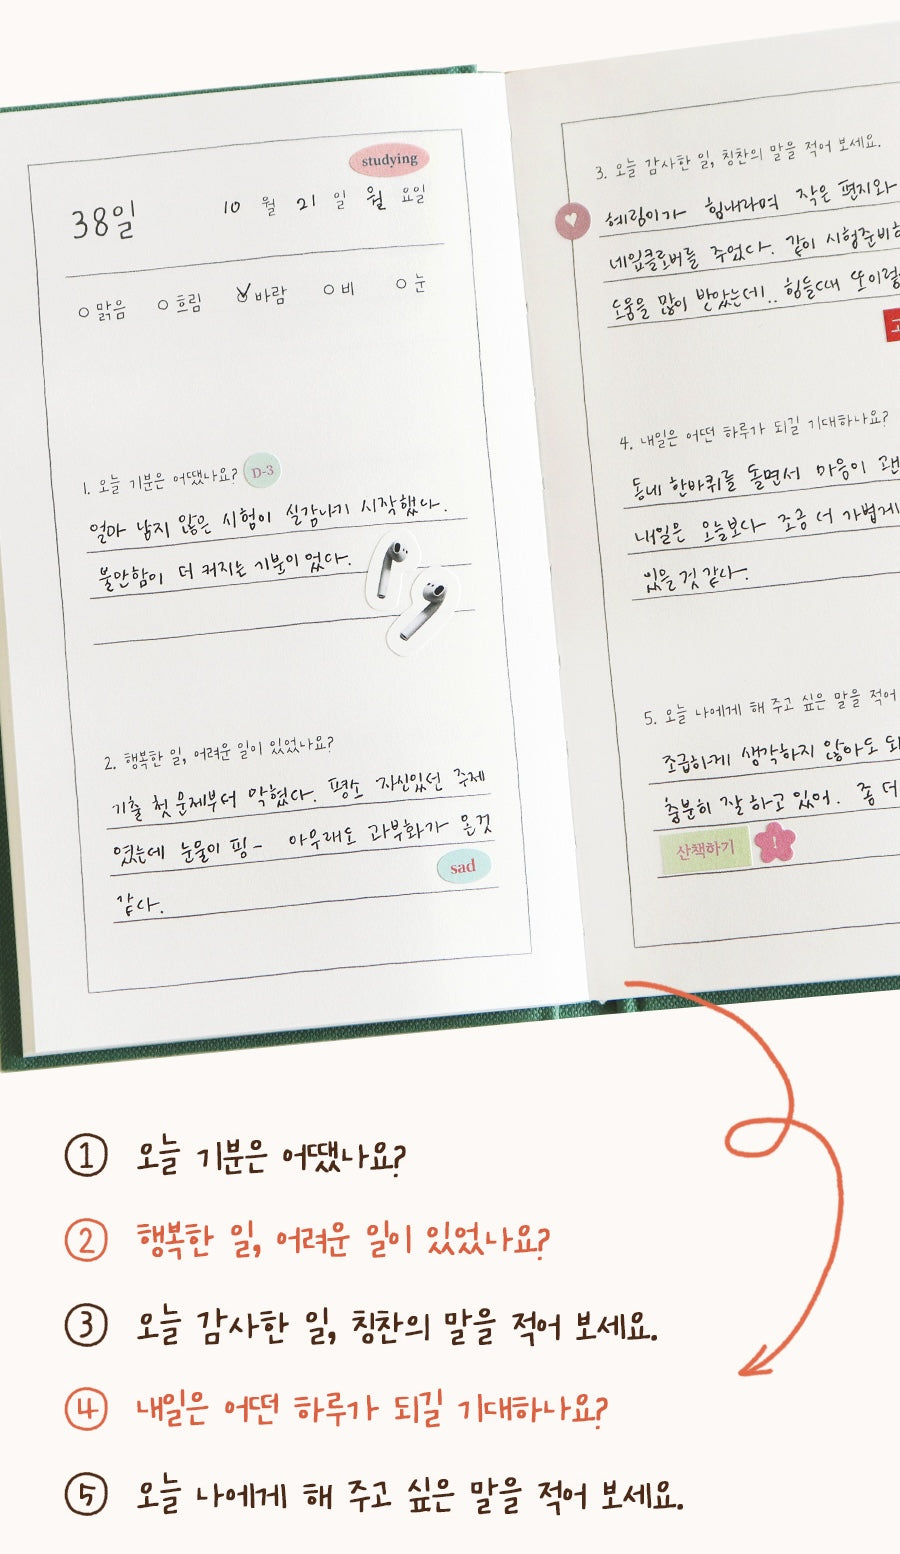 studying
38일
10 월 21 일 월 요일
맑음 흐림 바람 비 눈
1. 오늘 기분은 어땠나요? D-3
얼마 남지 않은 시험이 실감나기 시작했다.
불안함이 더 커지는 기분이었다.
2. 행복한 일, 어려운 일이 있었나요?
기출 첫 문제부터 막혔다. 평소 자신있던 주제
였는데 눈물이 핑- 아무래도 과부화가 온것
sad
같다.
3. 오늘 감사한 일, 칭찬의 말을 적어 보세요.
혜림이가 힘내라며 작은 편지와
네잎클로버를 주었다. 같이 시험준비하
도움을 많이 받았는데.. 힘들때 또 이렇
고
4. 내일은 어떤 하루가 되길 기대하나요?
동네 한바퀴를 돌면서 마음이 괜
내일은 오늘보다 조금 더 가볍게
있을 것 같다.
5. 오늘 나에게 해 주고 싶은 말을 적어
조급하게 생각하지 않아도 되
충분히 잘 하고 있어. 좀 더
산책하기 !
① 오늘 기분은 어땠나요?
② 행복한 일, 어려운 일이 있었나요?
③ 오늘 감사한 일, 칭찬의 말을 적어 보세요.
④ 내일은 어떤 하루가 되길 기대하나요?
⑤ 오늘 나에게 해 주고 싶은 말을 적어 보세요.